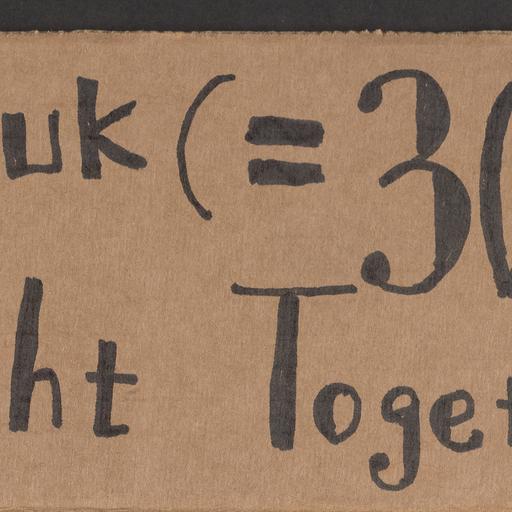 uk (=30
ht Toget